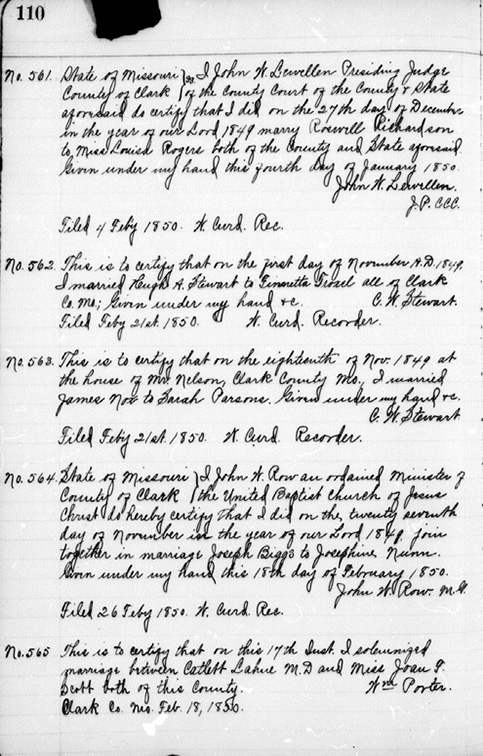 110
No. 561. State of Missouri } ss I John W. Lewellen Presiding Judge
County of Clark } of the County Court of the County & State
aforesaid do certify that I did on the 27th day of December
in the year of our Lord 1849 marry Roswell Richardson
to Miss Louisa Rogers both of the County and State aforesaid.
Given under my hand this fourth day of January 1850.
John W. Lewellen.
J.P.C.C.C.
Filed 4 Feby 1850. W. Curd. Rec.
No. 562. This is to certify that on the first day of November A.D. 1849,
I married Hugh A. Stewart to all of Clark
Co. Mo; Given under my hand &c. C. W. Stewart.
Filed Feby 21st. 1850. W. Curd. Recorder.
No. 563. This is to certify that on the eighteenth of Nov. 1849 at
the house of Mr. Nelson, Clark County Mo., I married
James Nox to Sarah Parsons. Given under my hand &c.
C. W. Stewart
Filed Feby 21st. 1850. W. Curd. Recorder.
No. 564. State of Missouri } I John W. Row an ordained Minister of
County of Clark } the United Baptist Church of Jesus
Christ do hereby certify that I did on the, twenty seventh
day of November in the year of our Lord 1849, join
together in marriage Joseph Biggs to Josephine Nunn.
Given under my hand this 18th day of February 1850.
John W. Row. M.G.
Filed 26 Feby 1850. W. Curd Rec.
No. 565 This is to certify that on this 17th Inst. I solemnized
marriage between Catlett Lahue M.D and Miss Joan F.
Scott both of this County. Wm Porter.
Clark Co. Mo. Feb. 18, 1850.